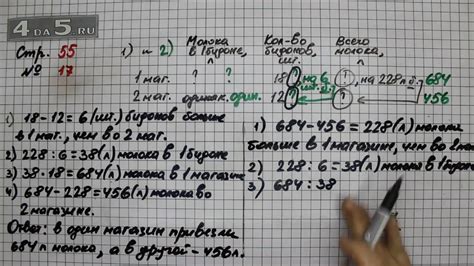 4 ДА 5 .RU
Стр. 55
№ 17
1) и 2)
Молока в 1 бидоне, л
Кол-во бидонов, шт.
Всего молока, л
1 маг. ? 18 ?, на 6 шт. б. ?, на 228 л б. 684
2 маг. одинак. один. 12 ? ? 456
1) 18-12=6 (шт.) бидонов больше
в 1 маг., чем во 2 маг.
2) 228:6=38(л) молока в 1 бидоне
3) 38·18=684(л) молока в 1 магазине
4) 684-228=456(л) молока во
2 магазине.
Ответ: в один магазин привезли
684 л молока, а в другой - 456 л.
1) 684-456=228(л) молока
больше в 1 магазине, чем во 2
2) 228:6=38(л) молока в 1
3) 684:38